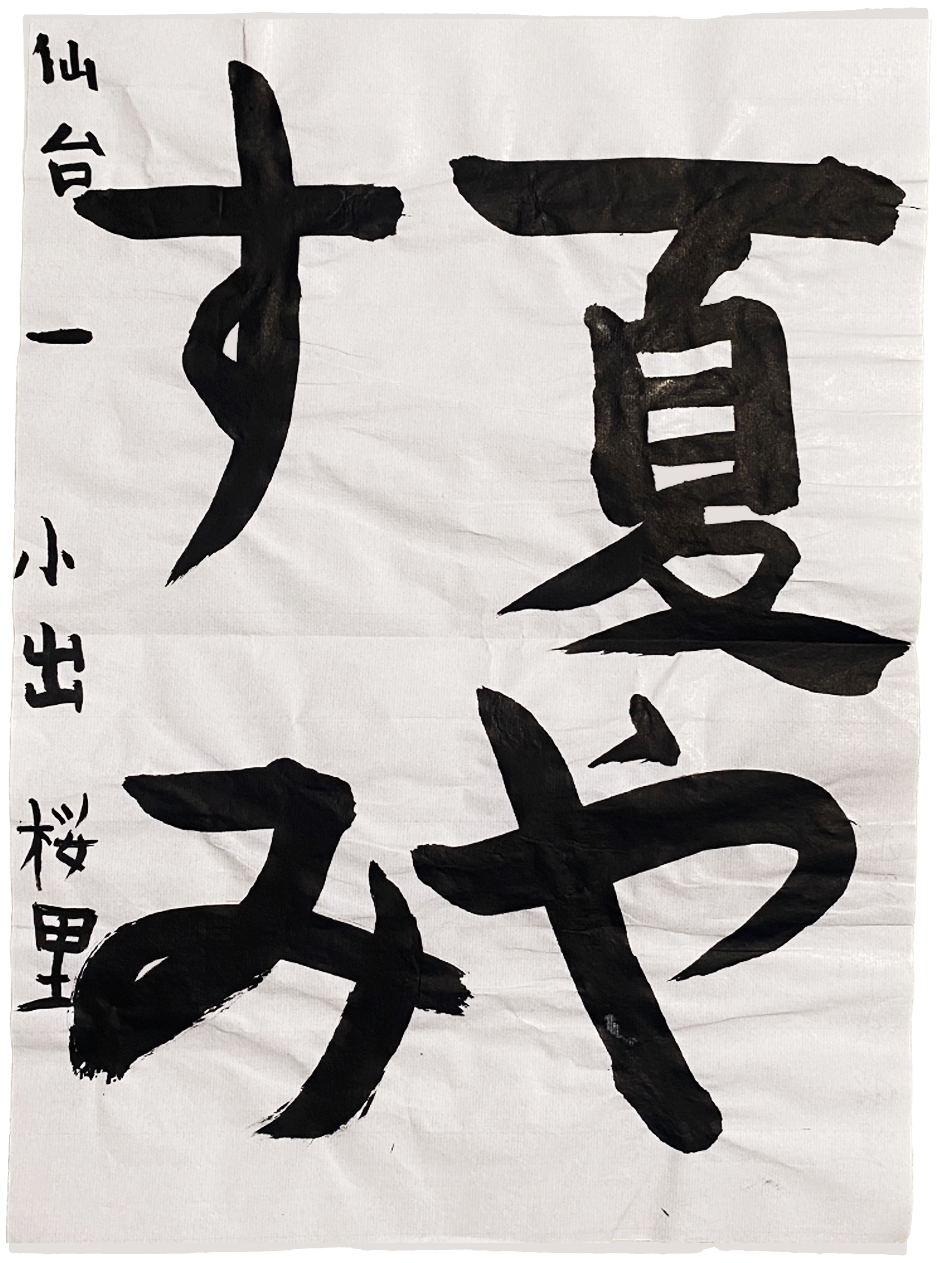 夏や
すみ
仙台一 小出 桜里